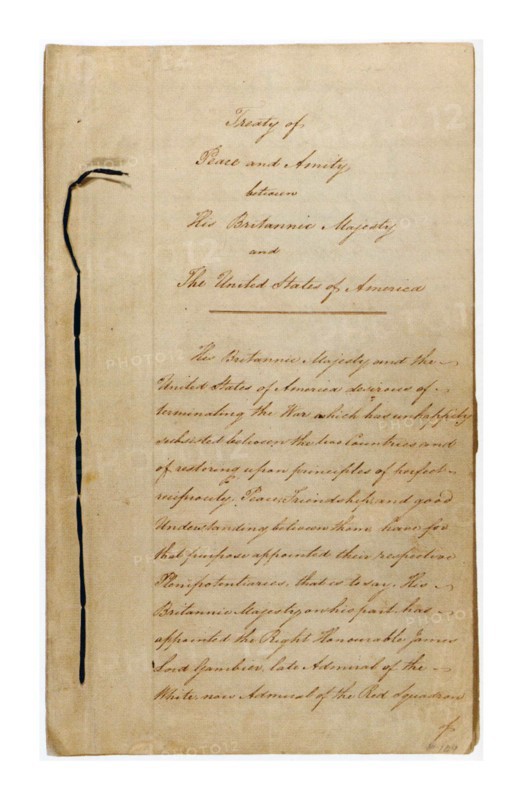 Treaty of
Peace and Amity
between
His Britannic Majesty
and
The United States of America
His Britannic Majesty and the
United States of America desirous of
terminating the War which has unhappily
subsisted between the two Countries and
of restoring upon principles of perfect
reciprocity, Peace, Friendship, and good
Understanding between them, have for
that purpose appointed their respective
Plenipotentiaries, that is to say, His
Britannic Majesty on his part has
appointed the Right Honourable James
Lord Gambier, late Admiral of the
White now Admiral of the Red Squadron
of
PHOTO12